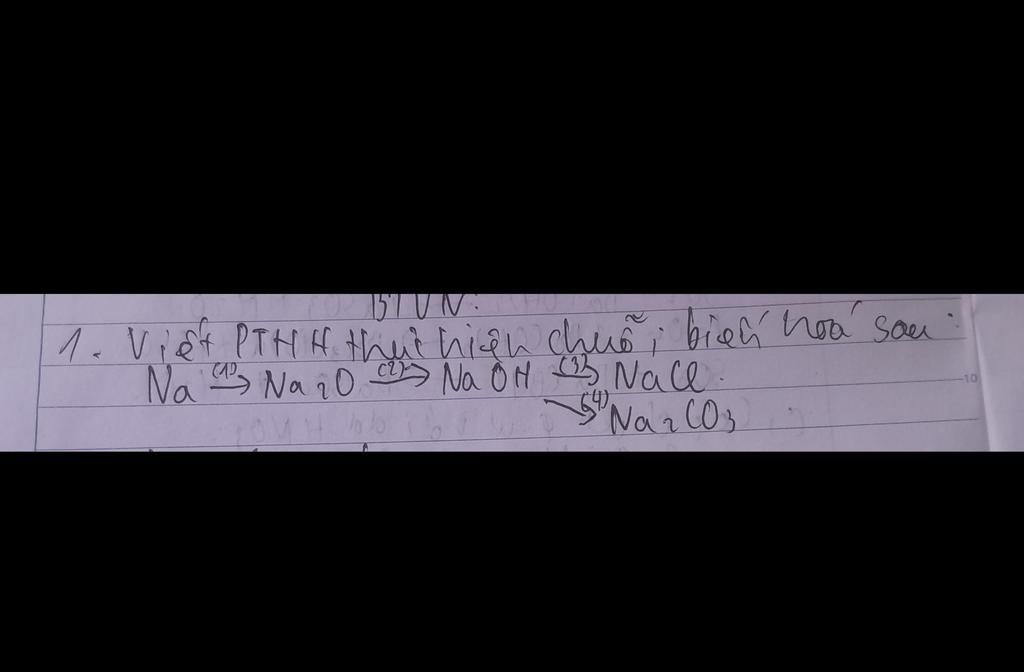 BTVN:
1. Viết PTHH thực hiện chuỗi biến hoá sau:
Na (1)→ Na2O (2)→ NaOH (3)→ NaCl.
(4)→ Na2CO3
10